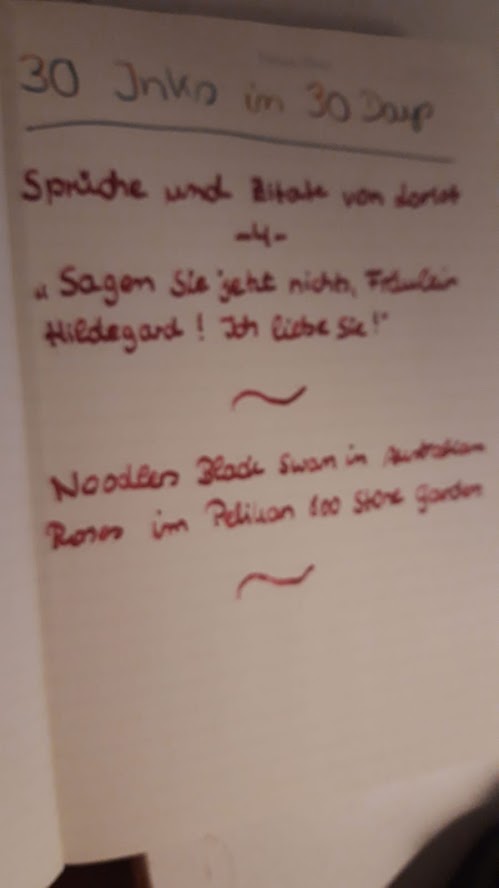 30 Inks in 30 Days
Sprüche und Zitate von Loriot
-4-
„Sagen Sie jetzt nichts, Fräulein
Hildegard! Ich liebe Sie!"
~
Noodlers Black Swan in Australian
Roses im Pelikan 600 Stone Garden
~